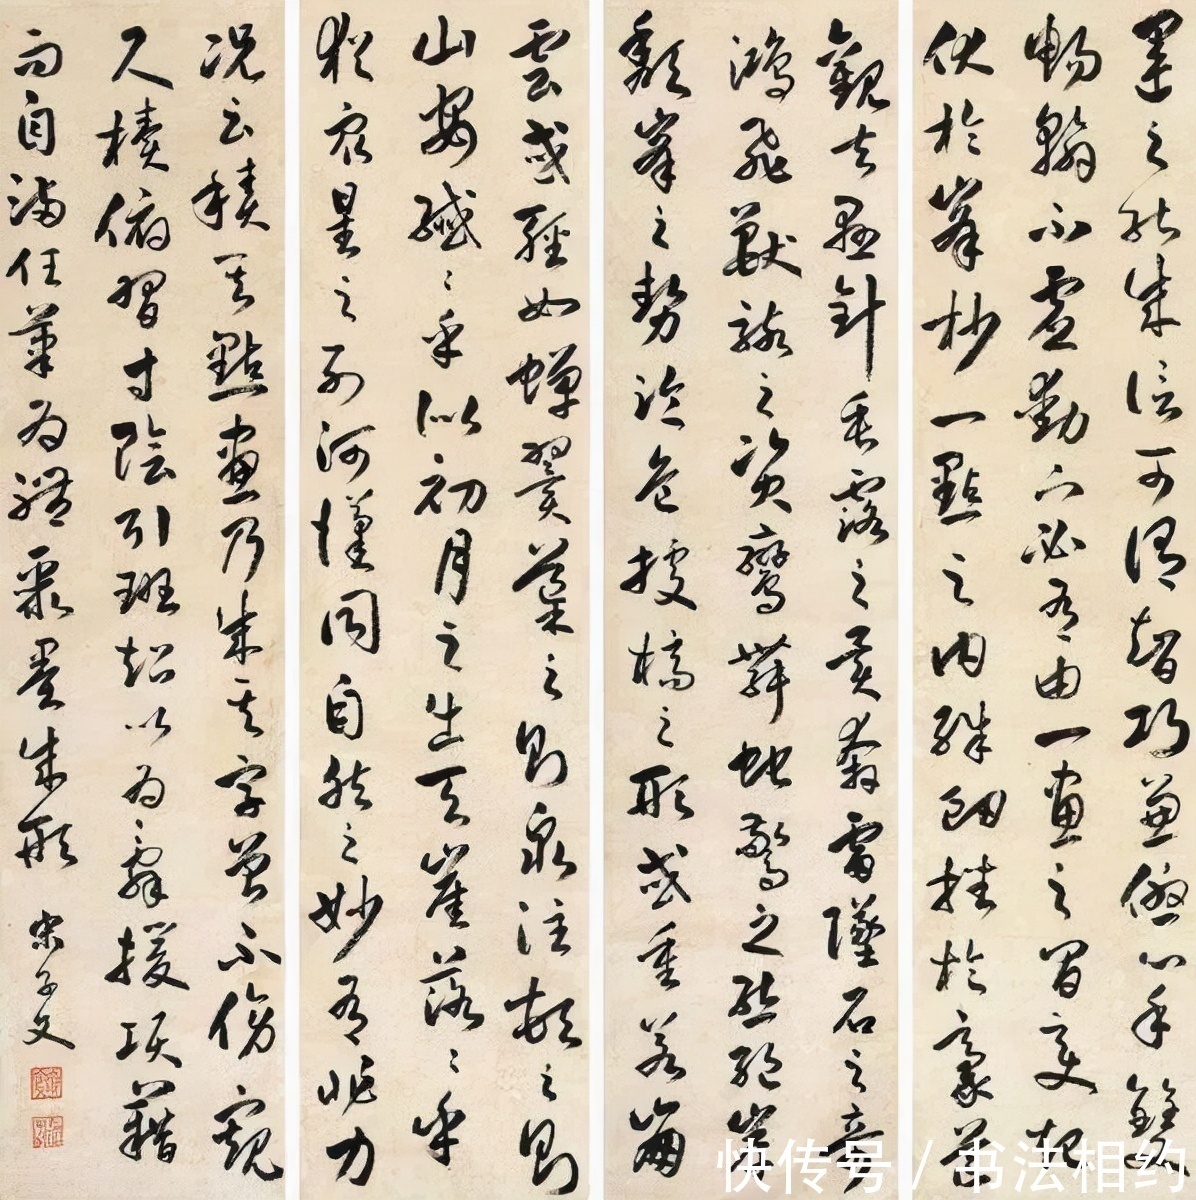 運之能成信可謂智巧兼優心手雙
暢翰不虛動下必有由一畫之間變起
伏於峯杪一點之內殊衄挫於豪芒
觀夫懸針垂露之異奔雷墜石之奇
鴻飛獸駭之資鸞舞蛇驚之態絕岸
頹峯之勢臨危據槁之形或重若崩
雲或輕如蟬翼導之則泉注頓之則
山安纖〻乎似初月之出天崖落〻乎
猶衆星之列河漢同自然之妙有非力
況云積其點畫乃成其字曾不傍窺
尺櫝俯習寸陰引班超以為辭援項籍
而自滿任筆為體聚墨成形 宋子文
快传号 / 书法相约